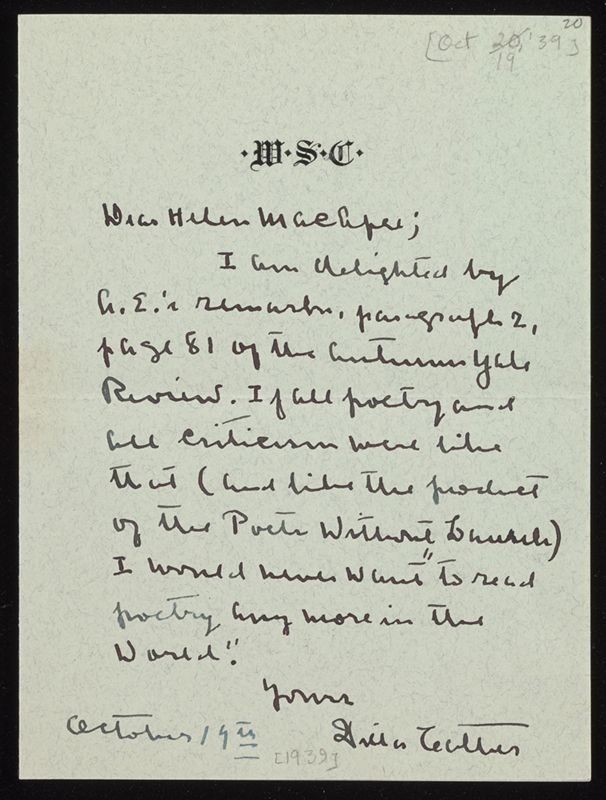 20
[Oct 20, '39]
19
·W·S·C·
Dear Helen MacAfee;
I am delighted by
A. E.'s remarks, paragraph 2,
page 81 of the autumn Yale
Review. If all poetry and
all criticism were like
that (and like the product
of the Poets Without Laurels)
I would never want "to read
poetry any more in the
World".
Yours
Willa Cather
October 19th
[1939]